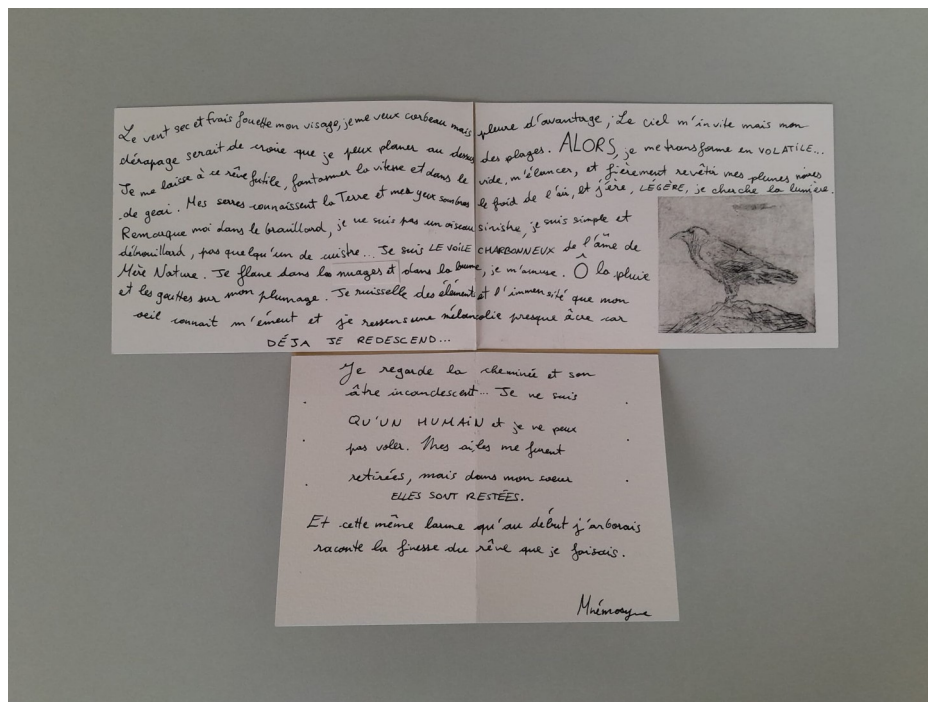 Le vent sec et frais fouette mon visage, je me veux corbeau mais pleure d'avantage, Le ciel m'invite mais mon
dérapage serait de croire que je peux planer au dessus des plages. ALORS, je me transforme en VOLATILE...
Je me laisse à ce rêve futile, fantasmer la vitesse et dans le vide, m'élancer, et fièrement revêtir mes plumes noires
de geai. Mes serres connaissent la Terre et mes yeux sombres le froid de l'air, et j'erre, LÉGÈRE, je cherche la lumière.
Remarque moi dans le brouillard, je ne suis pas un oiseau sinistre, je suis simple et
débrouillard, pas quelqu'un de cuistre... Je suis LE VOILE CHARBONNEUX de l'âme de
Mère Nature. Je flane dans les nuages et dans la brume, je m'amuse. Ô la pluie
et les gouttes sur mon plumage. Je ruisselle des éléments et l'immensité que mon
oeil connait m'ément et je ressens une mélancolie presque âcre car
DÉJA JE REDESCEND...
Je regarde la cheminée et son
âtre incandescent... Je ne suis
QU'UN HUMAIN et je ne peux
pas voler. Mes ailes me furent
retirées, mais dans mon coeur
ELLES SONT RESTÉES.
Et cette même larme qu'au début j'arborais
raconte la finesse du rêve que je faisais.
Mnémosyne